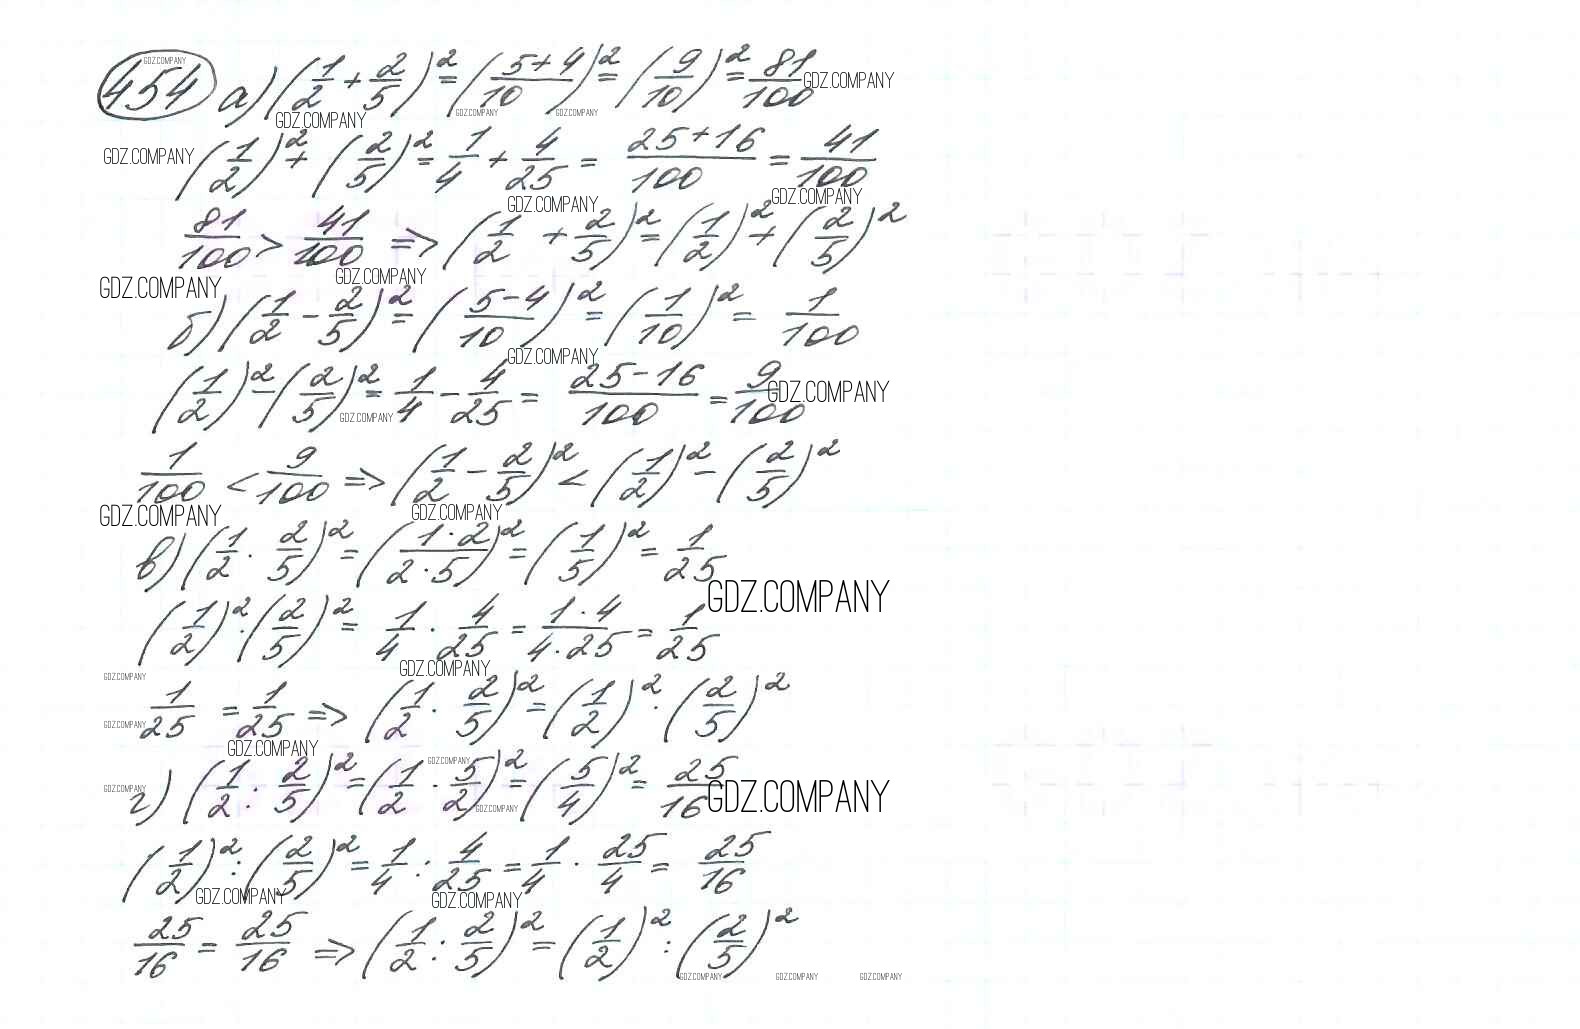 454 а) (1/2 + 2/5)² = ((5+4)/10)² = (9/10)² = 81/100
(1/2)² + (2/5)² = 1/4 + 4/25 = (25+16)/100 = 41/100
81/100 > 41/100 => (1/2 + 2/5)² = (1/2)² + (2/5)²
б) (1/2 - 2/5)² = ((5-4)/10)² = (1/10)² = 1/100
(1/2)² - (2/5)² = 1/4 - 4/25 = (25-16)/100 = 9/100
1/100 < 9/100 => (1/2 - 2/5)² < (1/2)² - (2/5)²
в) (1/2 · 2/5)² = ((1·2)/(2·5))² = (1/5)² = 1/25
(1/2)² · (2/5)² = 1/4 · 4/25 = (1·4)/(4·25) = 1/25
1/25 = 1/25 => (1/2 · 2/5)² = (1/2)² · (2/5)²
г) (1/2 : 2/5)² = (1/2 · 5/2)² = (5/4)² = 25/16
(1/2)² : (2/5)² = 1/4 : 4/25 = 1/4 · 25/4 = 25/16
25/16 = 25/16 => (1/2 : 2/5)² = (1/2)² : (2/5)²
GDZ.COMPANY